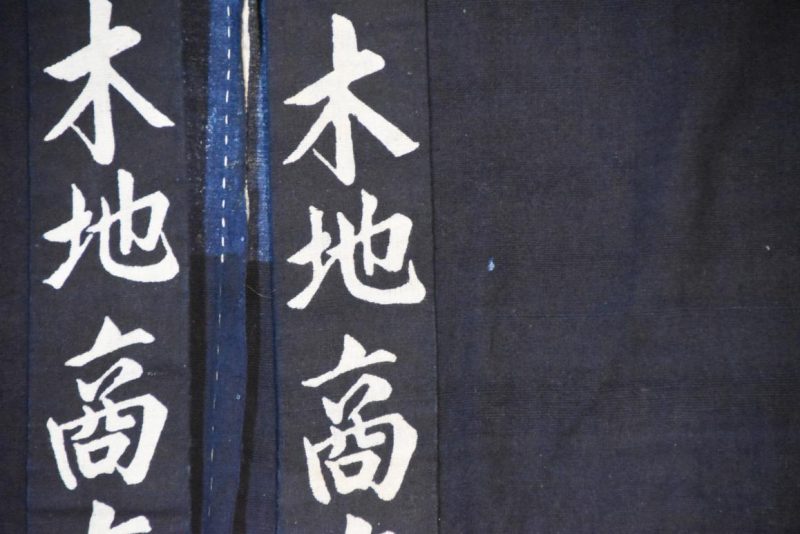 木地商
木地商